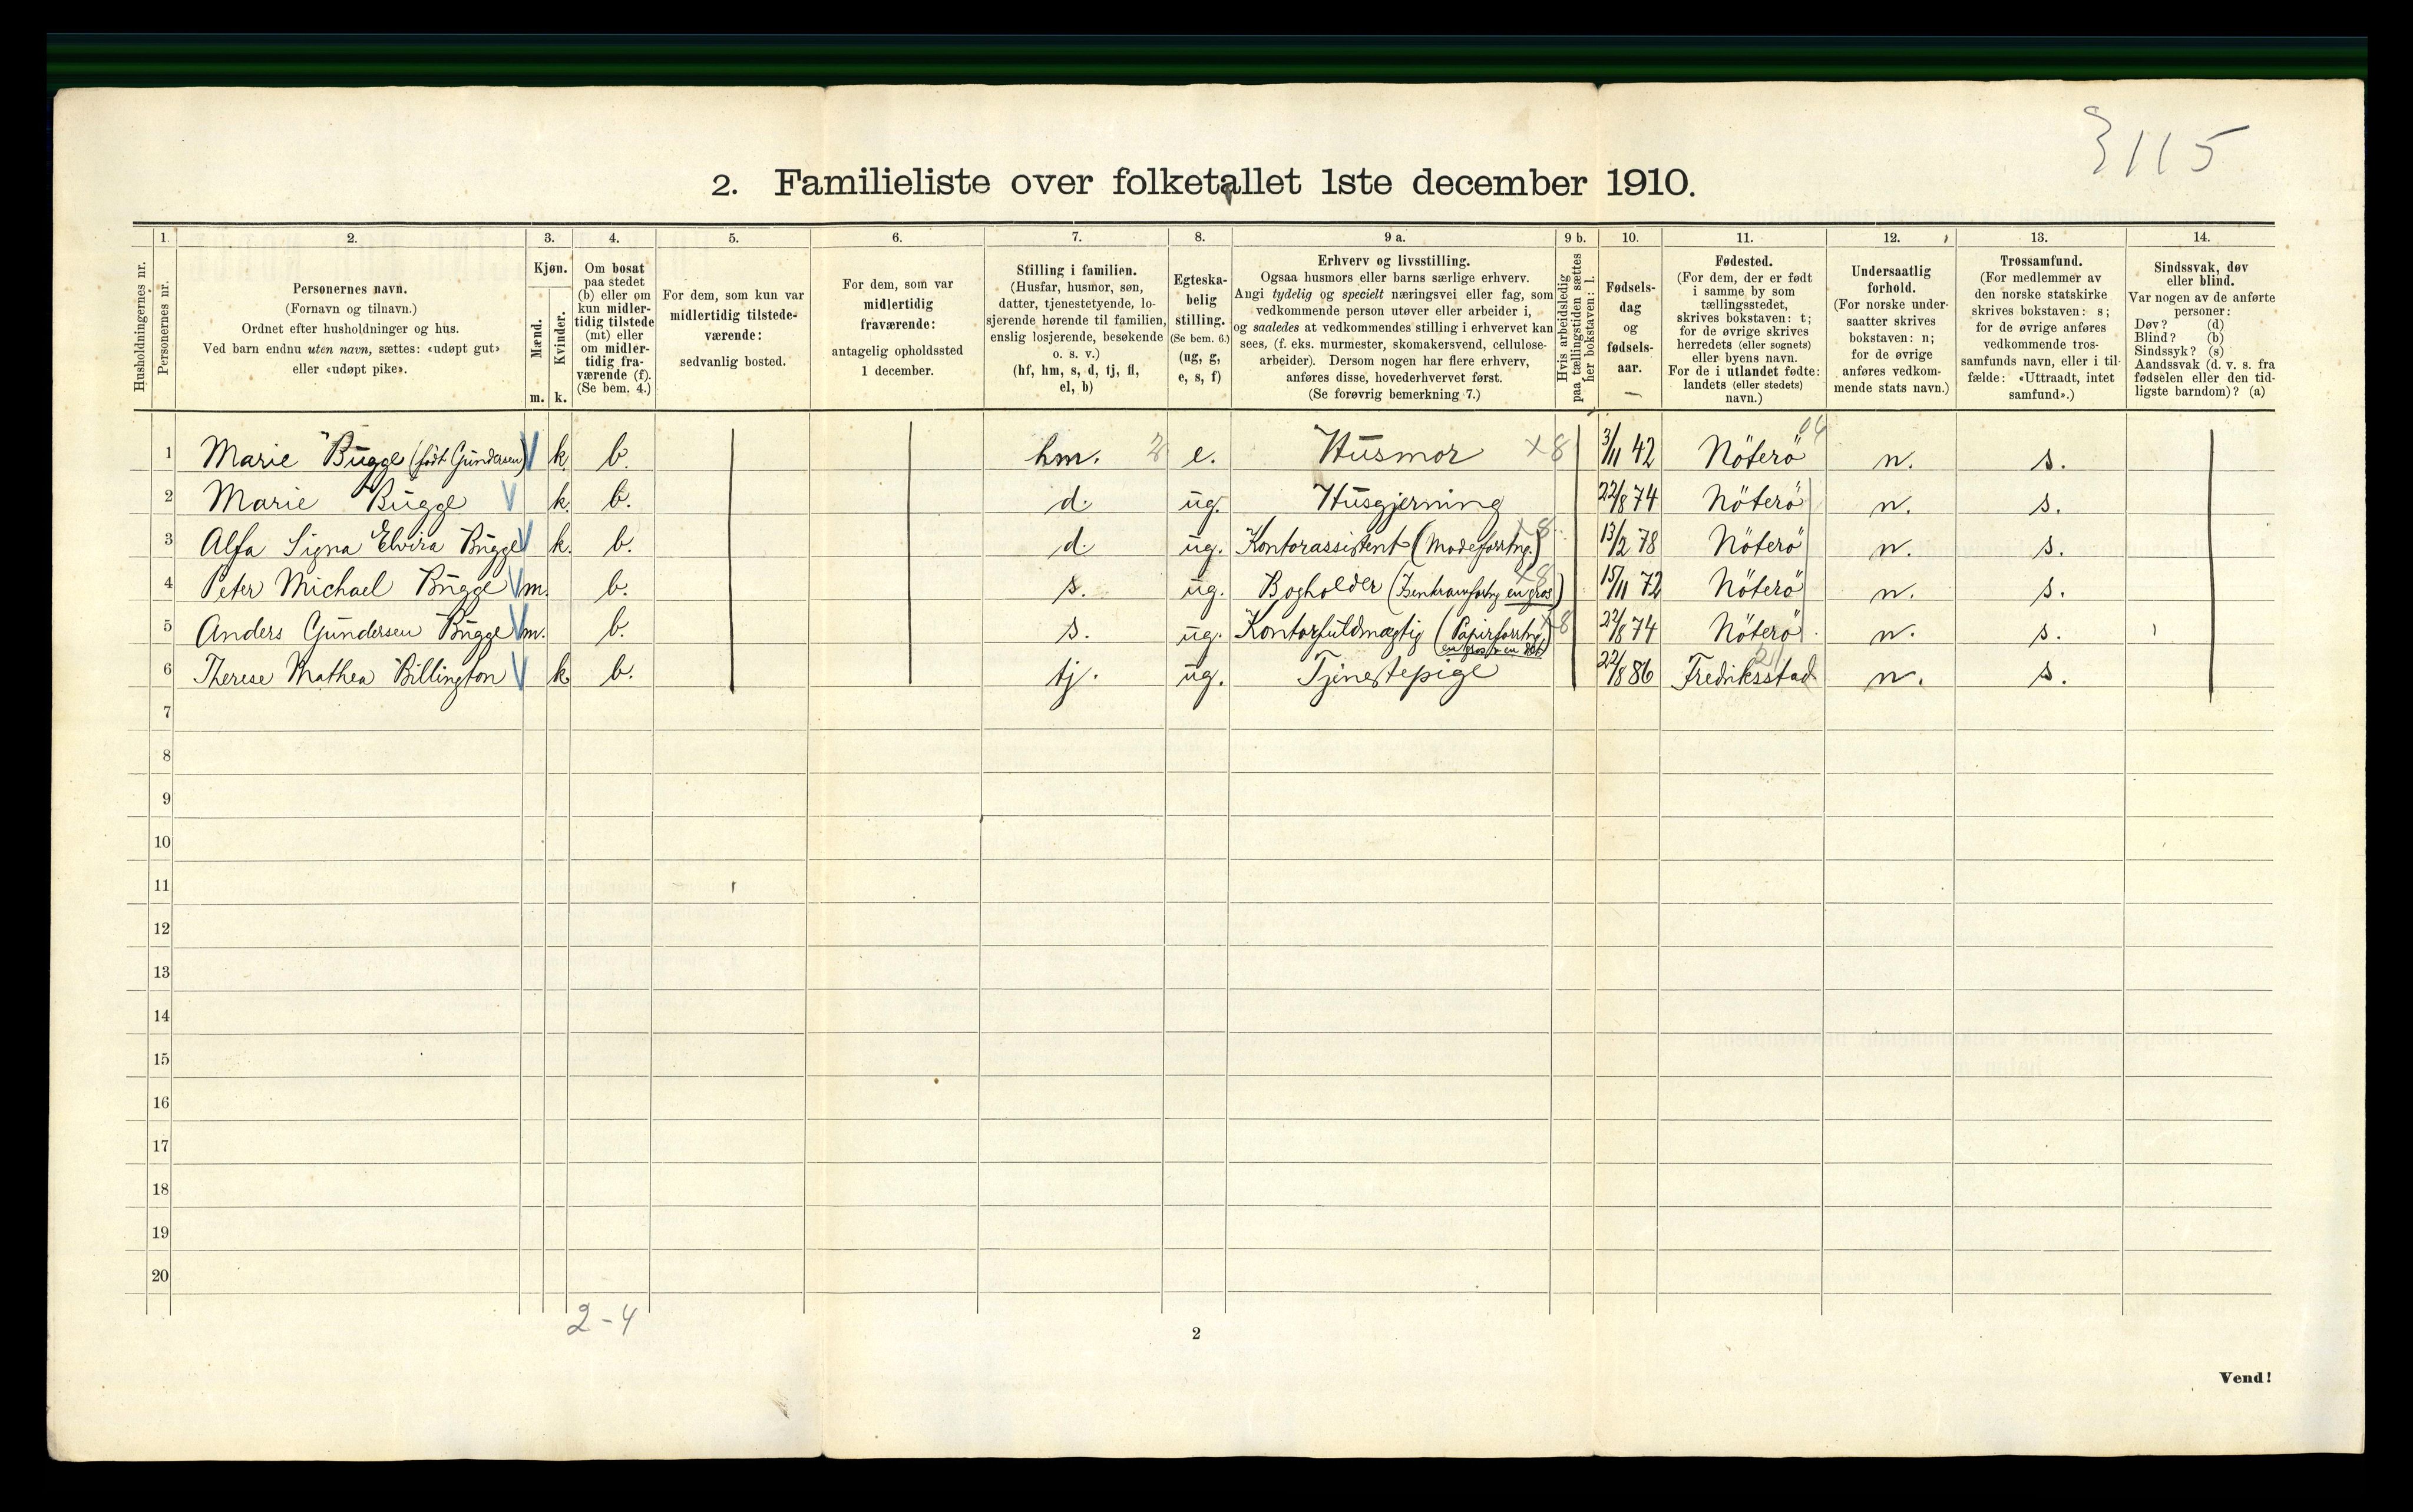 3115
2. Familieliste over folketallet 1ste december 1910.
1. 2. 3. 4. 5. 6. 7. 8. 9 a. 9 b. 10. 11. 12. 13. 14.
Husholdningernes nr.
Personernes nr.
Personernes navn.
(Fornavn og tilnavn.)
Ordnet efter husholdninger og hus.
Ved barn endnu uten navn, sættes: «udøpt gut»
eller «udøpt pike».
Kjøn.
Mænd.
Kvinder.
m. k.
Om bosat
paa stedet
(b) eller om
kun midler-
tidig tilstede
(mt) eller
om midler-
tidig fra-
værende (f).
(Se bem. 4.)
For dem, som kun var
midlertidig tilstede-
værende:
sedvanlig bosted.
For dem, som var
midlertidig
fraværende:
antagelig opholdssted
1 december.
Stilling i familien.
(Husfar, husmor, søn,
datter, tjenestetyende, lo-
sjerende hørende til familien,
enslig losjerende, besøkende
o. s. v.)
(hf, hm, s, d, tj, fl,
el, b)
Egteska-
belig
stilling.
(Se bem. 6.)
(ug, g,
e, s, f)
Erhverv og livsstilling.
Ogsaa husmors eller barns særlige erhverv.
Angi tydelig og specielt næringsvei eller fag, som
vedkommende person utøver eller arbeider i,
og saaledes at vedkommendes stilling i erhvervet kan
sees, (f. eks. murmester, skomakersvend, cellulose-
arbeider). Dersom nogen har flere erhverv,
anføres disse, hovederhvervet først.
(Se forøvrig bemerkning 7.)
Hvis arbeidsledig
paa tællingstiden sættes
her bokstaven: l.
Fødsels-
dag
og
fødsels-
aar.
Fødested.
(For dem, der er født
i samme by som
tællingsstedet,
skrives bokstaven: t;
for de øvrige skrives
herredets (eller sognets)
eller byens navn.
For de i utlandet fødte:
landets (eller stedets)
navn.)
Undersaatlig
forhold.
(For norske under-
saatter skrives
bokstaven: n;
for de øvrige
anføres vedkom-
mende stats navn.)
Trossamfund.
(For medlemmer av
den norske statskirke
skrives bokstaven: s;
for de øvrige anføres
vedkommende tros-
samfunds navn, eller i til-
fælde: «Uttraadt, intet
samfund».)
Sindssvak, døv
eller blind.
Var nogen av de anførte
personer:
Døv? (d)
Blind? (b)
Sindssyk? (s)
Aandssvak (d. v. s. fra
fødselen eller den tid-
ligste barndom)? (a)
1 Marie Bugge (født Gundersen) k. b. hm. e. Husmor x8 3/11 42 Nöterö n. s.
2 Marie Bugge k. b. d. ug. Husgjerning 22/8 74 Nöterö n. s.
3 Alfa Signa Elvira Bugge k. b. d. ug. Kontorassistent (Modeforrtng.) x8 13/2 78 Nöterö n. s.
4 Peter Michael Bugge m. b. s. ug. Bogholder (Isenkramfortng en gros) x8 15/11 72 Nöterö n. s.
5 Anders Gundersen Bugge m. b. s. ug. Kontorfuldmægtig (Papirforrtng. x8 22/8 74 Nöterö n. s.
en gros & en det.)
6 Therese Mathea Billington k. b. tj. ug. Tjenestepige 22/8 86 Fredriksstad n. s.
7
8
9
10
11
12
13
14
15
16
17
18
19
20
2-4
2
Vend!